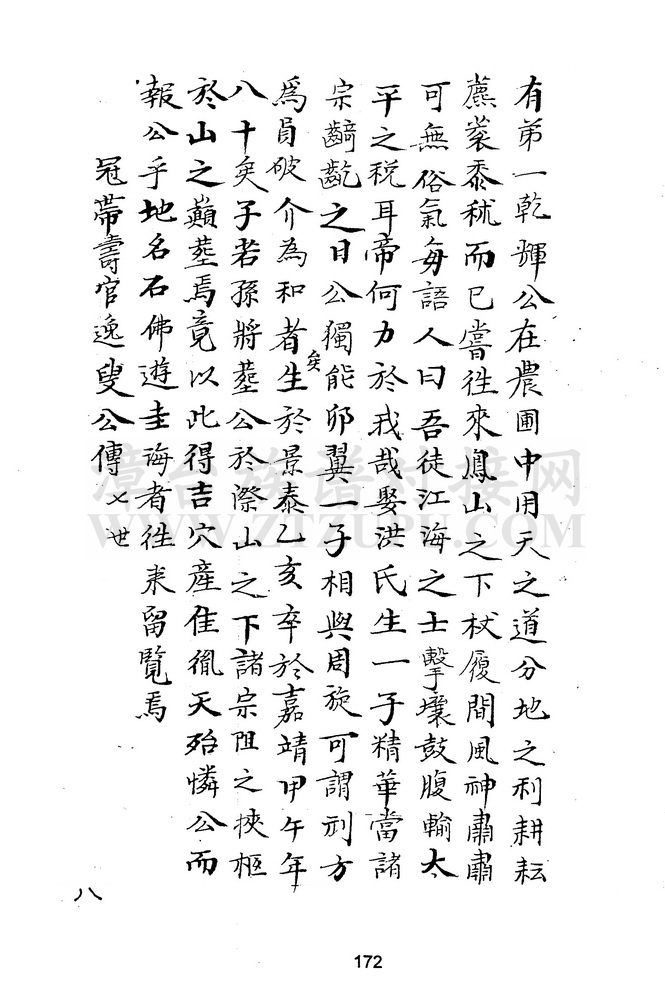 有弟一乾輝公在農圃中用天之道分地之利耕耘
藨蓘黍秫而已嘗徃來鳳山之下杖履間風神肅肅
可無俗氣每語人曰吾徒江海之士擊壤鼓腹輸太
平之税耳帝何力於我哉娶洪氏生一子精華當諸
宗齮齕之日公獨能卵翼一子相與周旋可謂刓方
為員破介為和者矣生於景泰乙亥卒於嘉靖甲午年
八十矣子若孫將塟公於漈山之下諸宗阻之挾柩
於山之巔塟焉竟以此得吉穴產佳㣧天殆憐公而
報公乎地名石佛遊圭海者徃来留覽焉
冠帶壽官逸叟公傳七世
八
172
漳台族譜對接网
WWW.ZTZUPU.COM